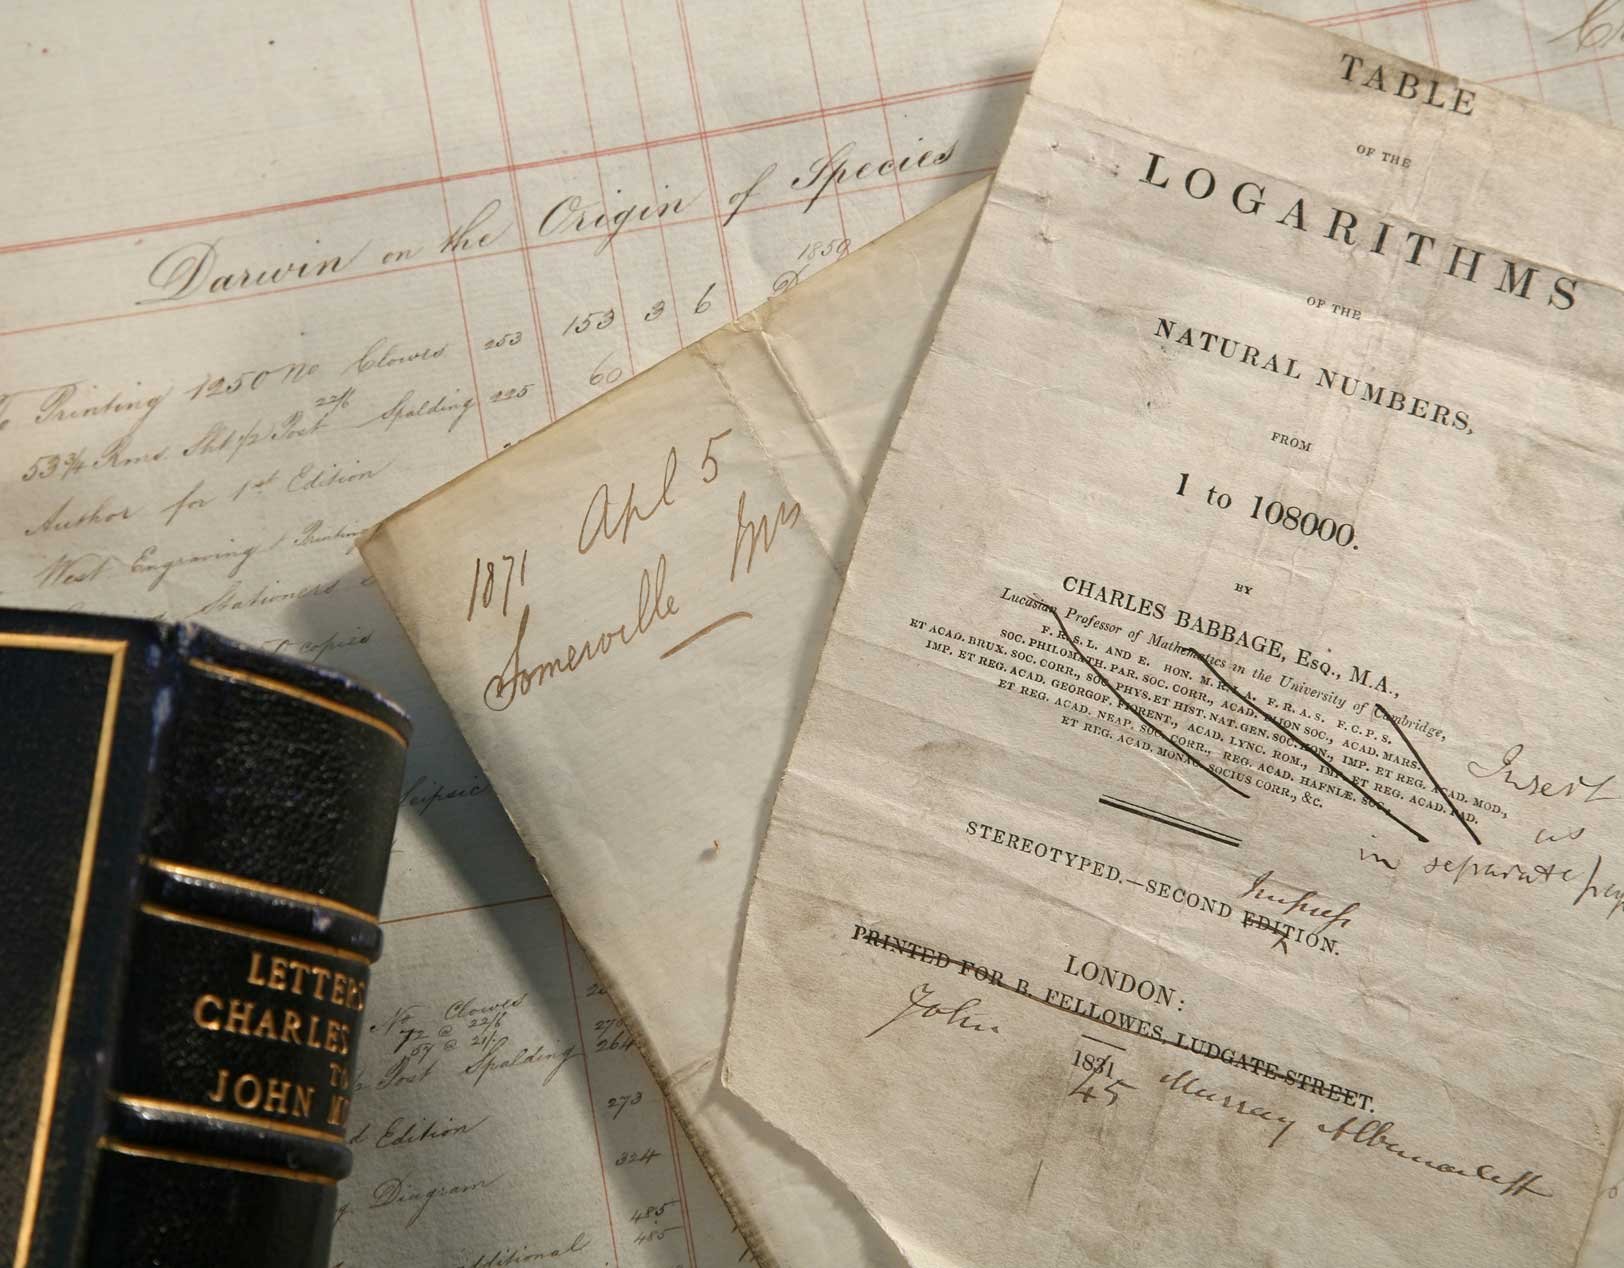 Darwin on the Origin of Species
1859
To Printing 1250 No Clowes 253 153 3 6
53¾ Rms Sht ½ Post 22/6 Spalding 225 60
Author for 1st Edition
West Engraving & Printing
Stationers
copies
Leipsic
No Clowes
72 @ 22/6
57 @ 21/-
½ Post Spalding 264
273
d Edition
324
Diagram
485
485
additional
1871 Apl 5
Somerville Mrs
LETTERS
CHARLES
TO
JOHN M
TABLE
OF THE
LOGARITHMS
OF THE
NATURAL NUMBERS,
FROM
1 to 108000.
BY
CHARLES BABBAGE, ESQ., M.A.,
Lucasian Professor of Mathematics in the University of Cambridge,
F. R. S. L. AND E. HON. M. R. I. A. F. R. A. S. F. C. P. S.
SOC. PHILOMATH. PAR. SOC. CORR., ACAD. DIJON SOC., ACAD. MARS.
ET ACAD. BRUX. SOC. CORR., SOC. PHYS. ET HIST. NAT. GEN. SOC. HON., IMP. ET REG. ACAD. MOD.,
IMP. ET REG. ACAD. GEORGOF. FIORENT., ACAD. LYNC. ROM., IMP. ET REG. ACAD. PAD.
ET REG. ACAD. NEAP. SOC. CORR., REG. ACAD. HAFNIÆ. SOC.,
ET REG. ACAD. MONAC. SOCIUS CORR., &c.
Insert
as
in separate
STEREOTYPED.—SECOND EDITION.
LONDON:
PRINTED FOR B. FELLOWES, LUDGATE STREET.
John Murray Albemarle St
1831
45